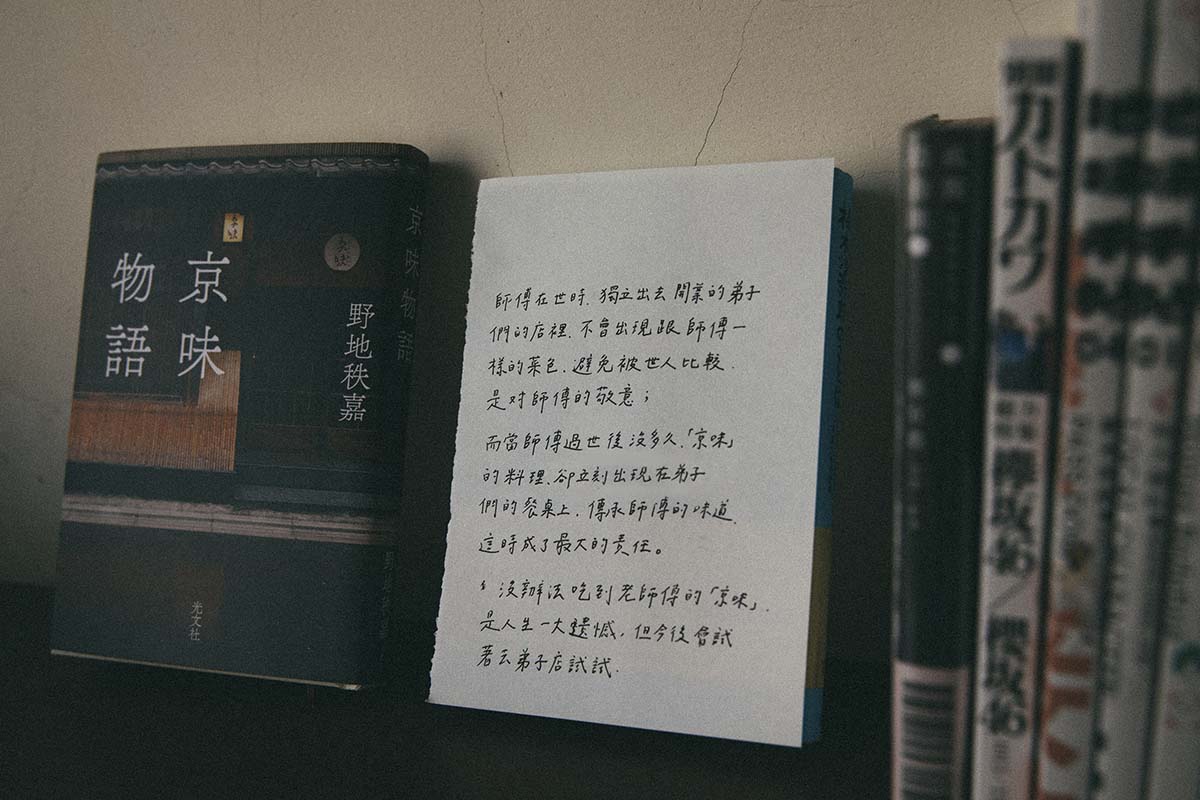 京味
物語
野地秩嘉
光文社
京味物語
師傅在世時、獨立出去開業的弟子
們的店裡、不會出現跟師傅一
樣的菜色、避免被世人比較、
是对師傅的敬意；
而當師傅過世後沒多久、「京味」
的料理、卻立刻出現在弟子
們的餐桌上、傳承師傅的味道、
這時成了最大的責任。
沒辦法吃到老師傅的「京味」、
是人生一大遺憾、但今後會試
著去弟子店試試.
別冊
カドカワ
欅坂46／櫻坂46
04
01